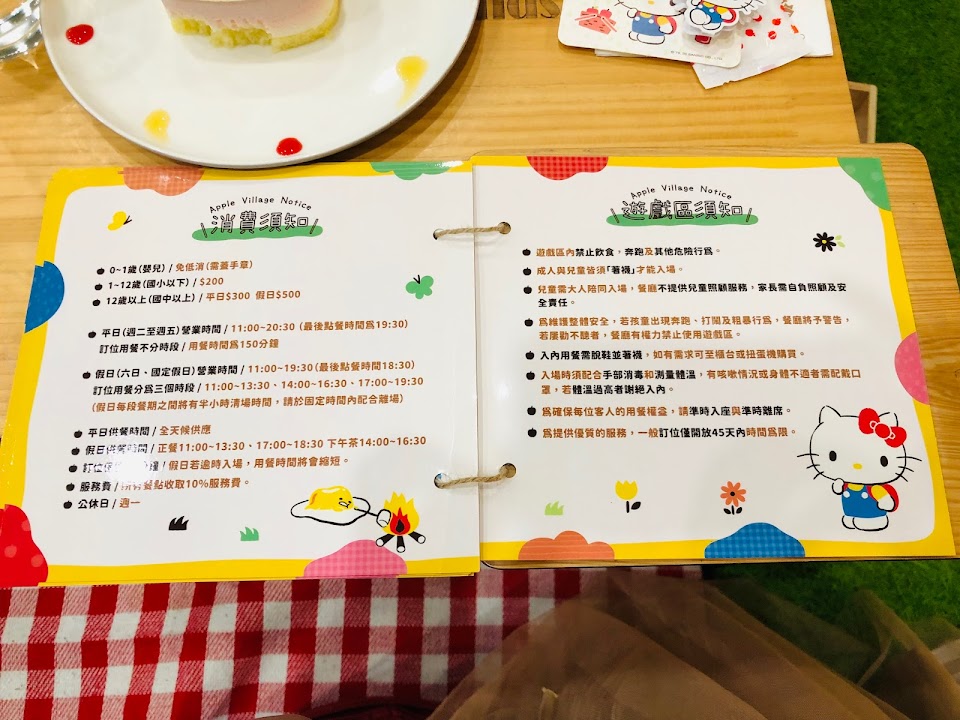 Apple Village Notice
消費須知
0~1歲(嬰兒) / 免低消(需蓋手章)
1~12歲(國小以下) / $200
12歲以上(國中以上) / 平日$300 假日$500
平日(週二至週五)營業時間 / 11:00~20:30 (最後點餐時間為19:30)
訂位用餐不分時段 / 用餐時間為150分鐘
假日(六日、國定假日)營業時間 / 11:00~19:30(最後點餐時間18:30)
訂位用餐分為三個時段 / 11:00~13:30、14:00~16:30、17:00~19:30
(假日每段餐期之間將有半小時清場時間,請於固定時間內配合離場)
平日供餐時間 / 全天候供應
假日供餐時間 / 正餐11:00~13:30、17:00~18:30 下午茶14:00~16:30
訂位保 鐘 / 假日若逾時入場,用餐時間將會縮短。
服務費 / 餐點收取10%服務費。
公休日 / 週一
Apple Village Notice
遊戲區須知
遊戲區內禁止飲食,奔跑及其他危險行為。
成人與兒童皆須「著襪」才能入場。
兒童需大人陪同入場,餐廳不提供兒童照顧服務,家長需自負照顧及安
全責任。
為維護整體安全,若孩童出現奔跑、打鬧及粗暴行為,餐廳將予警告,
若屢勸不聽者,餐廳有權力禁止使用遊戲區。
入內用餐需脫鞋並著襪,如有需求可至櫃台或扭蛋機購買。
入場時須配合手部消毒和測量體溫,有咳嗽情況或身體不適者需配戴口
罩,若體溫過高者謝絕入內。
為確保每位客人的用餐權益,請準時入座與準時離席。
為提供優質的服務,一般訂位僅開放45天內時間為限。